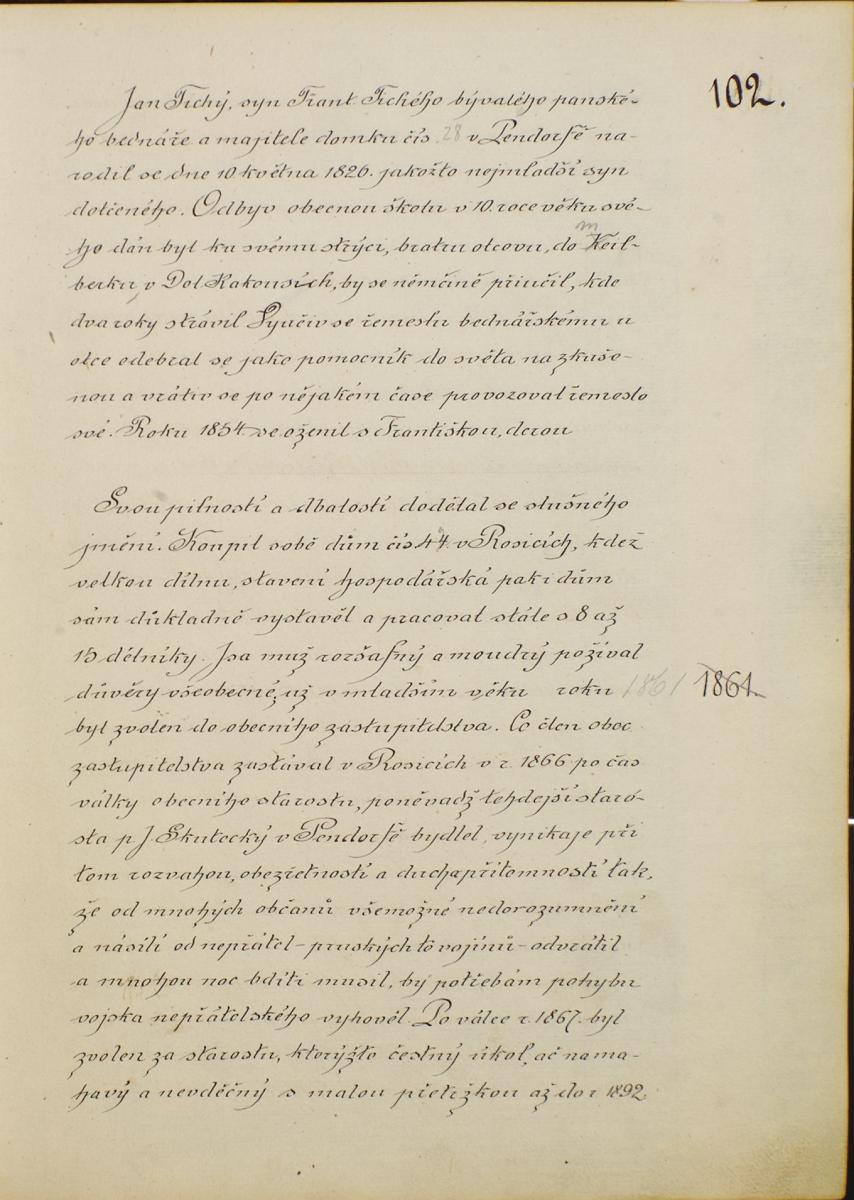 102.
Jan Tichý, syn Frant. Tichého bývalého panské-
ho bednáře a majitele domku čís. 28 v Pendorfě na-
rodil se dne 10 května 1826. jakožto nejmladší syn
dotčeného. Odbyv obecnou školu v 10. roce věku své-
ho dán byl ku svému strýci, bratru otcovu, do Keil-
berku, v Dol Kakousích, by se němčině přiučil, kde
dva roky strávil Vyučiv se řemeslu bednářskému u
otce odebral se jako pomocník do světa na zkuše-
nou a vrátiv se po nějakém čase provozoval řemeslo
své. Roku 1854 se oženil s Františkou, dcerou
Svou pilností a dbalostí dodělal se slušného
jmění. Koupil sobě dům čís 44 v Rosicích, kdež
velkou dílnu, stavení hospodářská pak i dům
sám důkladně vystavěl a pracoval stále s 8 až
15 dělníky. Jsa muž rozšafný a moudrý požíval
důvěry všeobecné, už v mladším věku roku 1861 1861
byl zvolen do obecního zastupitelstva. Co člen obec.
zastupitelstva zastával v Rosicích v r. 1866 po čas
války obecního starostu, poněvadž tehdejší staro-
sta p. J Skutecký v Pendorfě bydlel, vynikaje při
tom rozvahou, obezřetností a duchapřítomností tak,
že od mnohých občanů všemožné nedorozumnění
a násilí od nepřátel – pruských to vojínů – odvrátil
a mnohou noc bdíti musil, by potřebám pohybu
vojska nepřátelského vyhověl. Po válce r. 1867. byl
zvolen za starostu, kterýžto čestný úkol, ač nama-
havý a nevděčný s malou přetržkou až do r 1892.